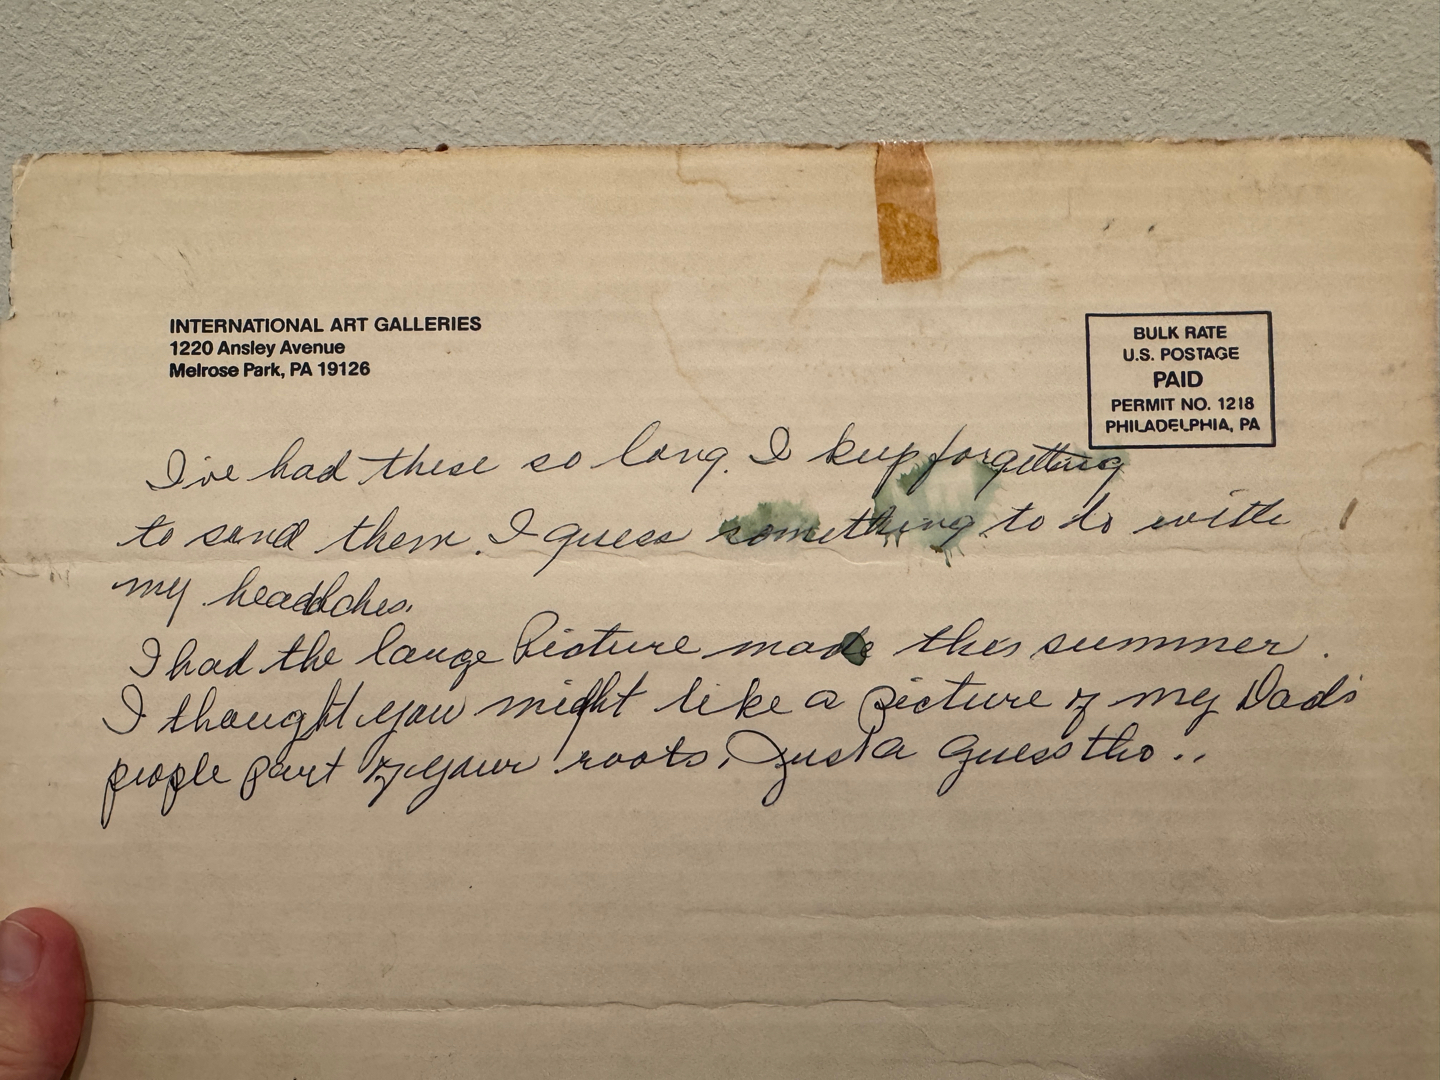 INTERNATIONAL ART GALLERIES
1220 Ansley Avenue
Melrose Park, PA 19126
BULK RATE
U.S. POSTAGE
PAID
PERMIT NO. 1218
PHILADELPHIA, PA
I've had these so long. I keep forgetting
to send them. I guess something to do with
my headaches.
I had the large Picture made this summer.
I thought you might like a picture of my Dad's
people part of your roots. Just a guess tho..